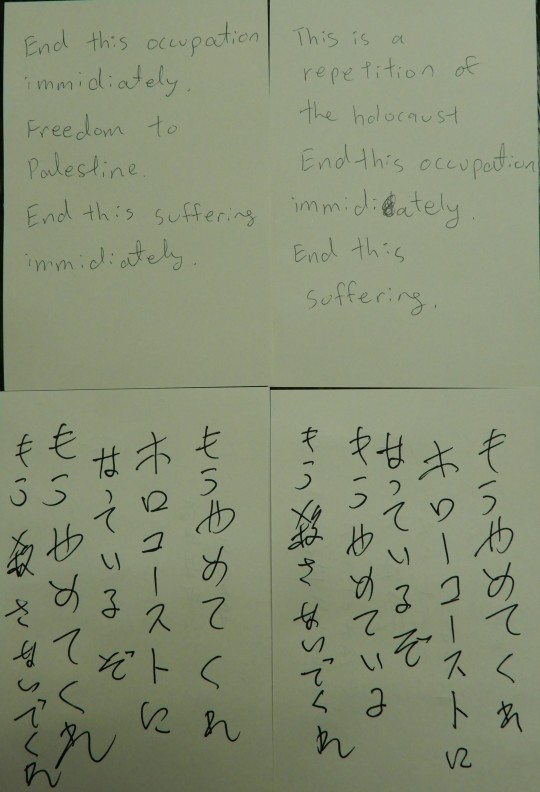 End this occupation
immidiately.
Freedom to
Palestine.
End this suffering
immidiately.
This is a
repetition of
the holocaust
End this occupation
immidiately.
End this
suffering.
もうやめてくれ
ホロコーストに
なっているぞ
もうやめてくれ
もう殺さないでくれ
もうやめてくれ
ホローコーストに
なっているぞ
もうやめている
もう殺さないでくれ